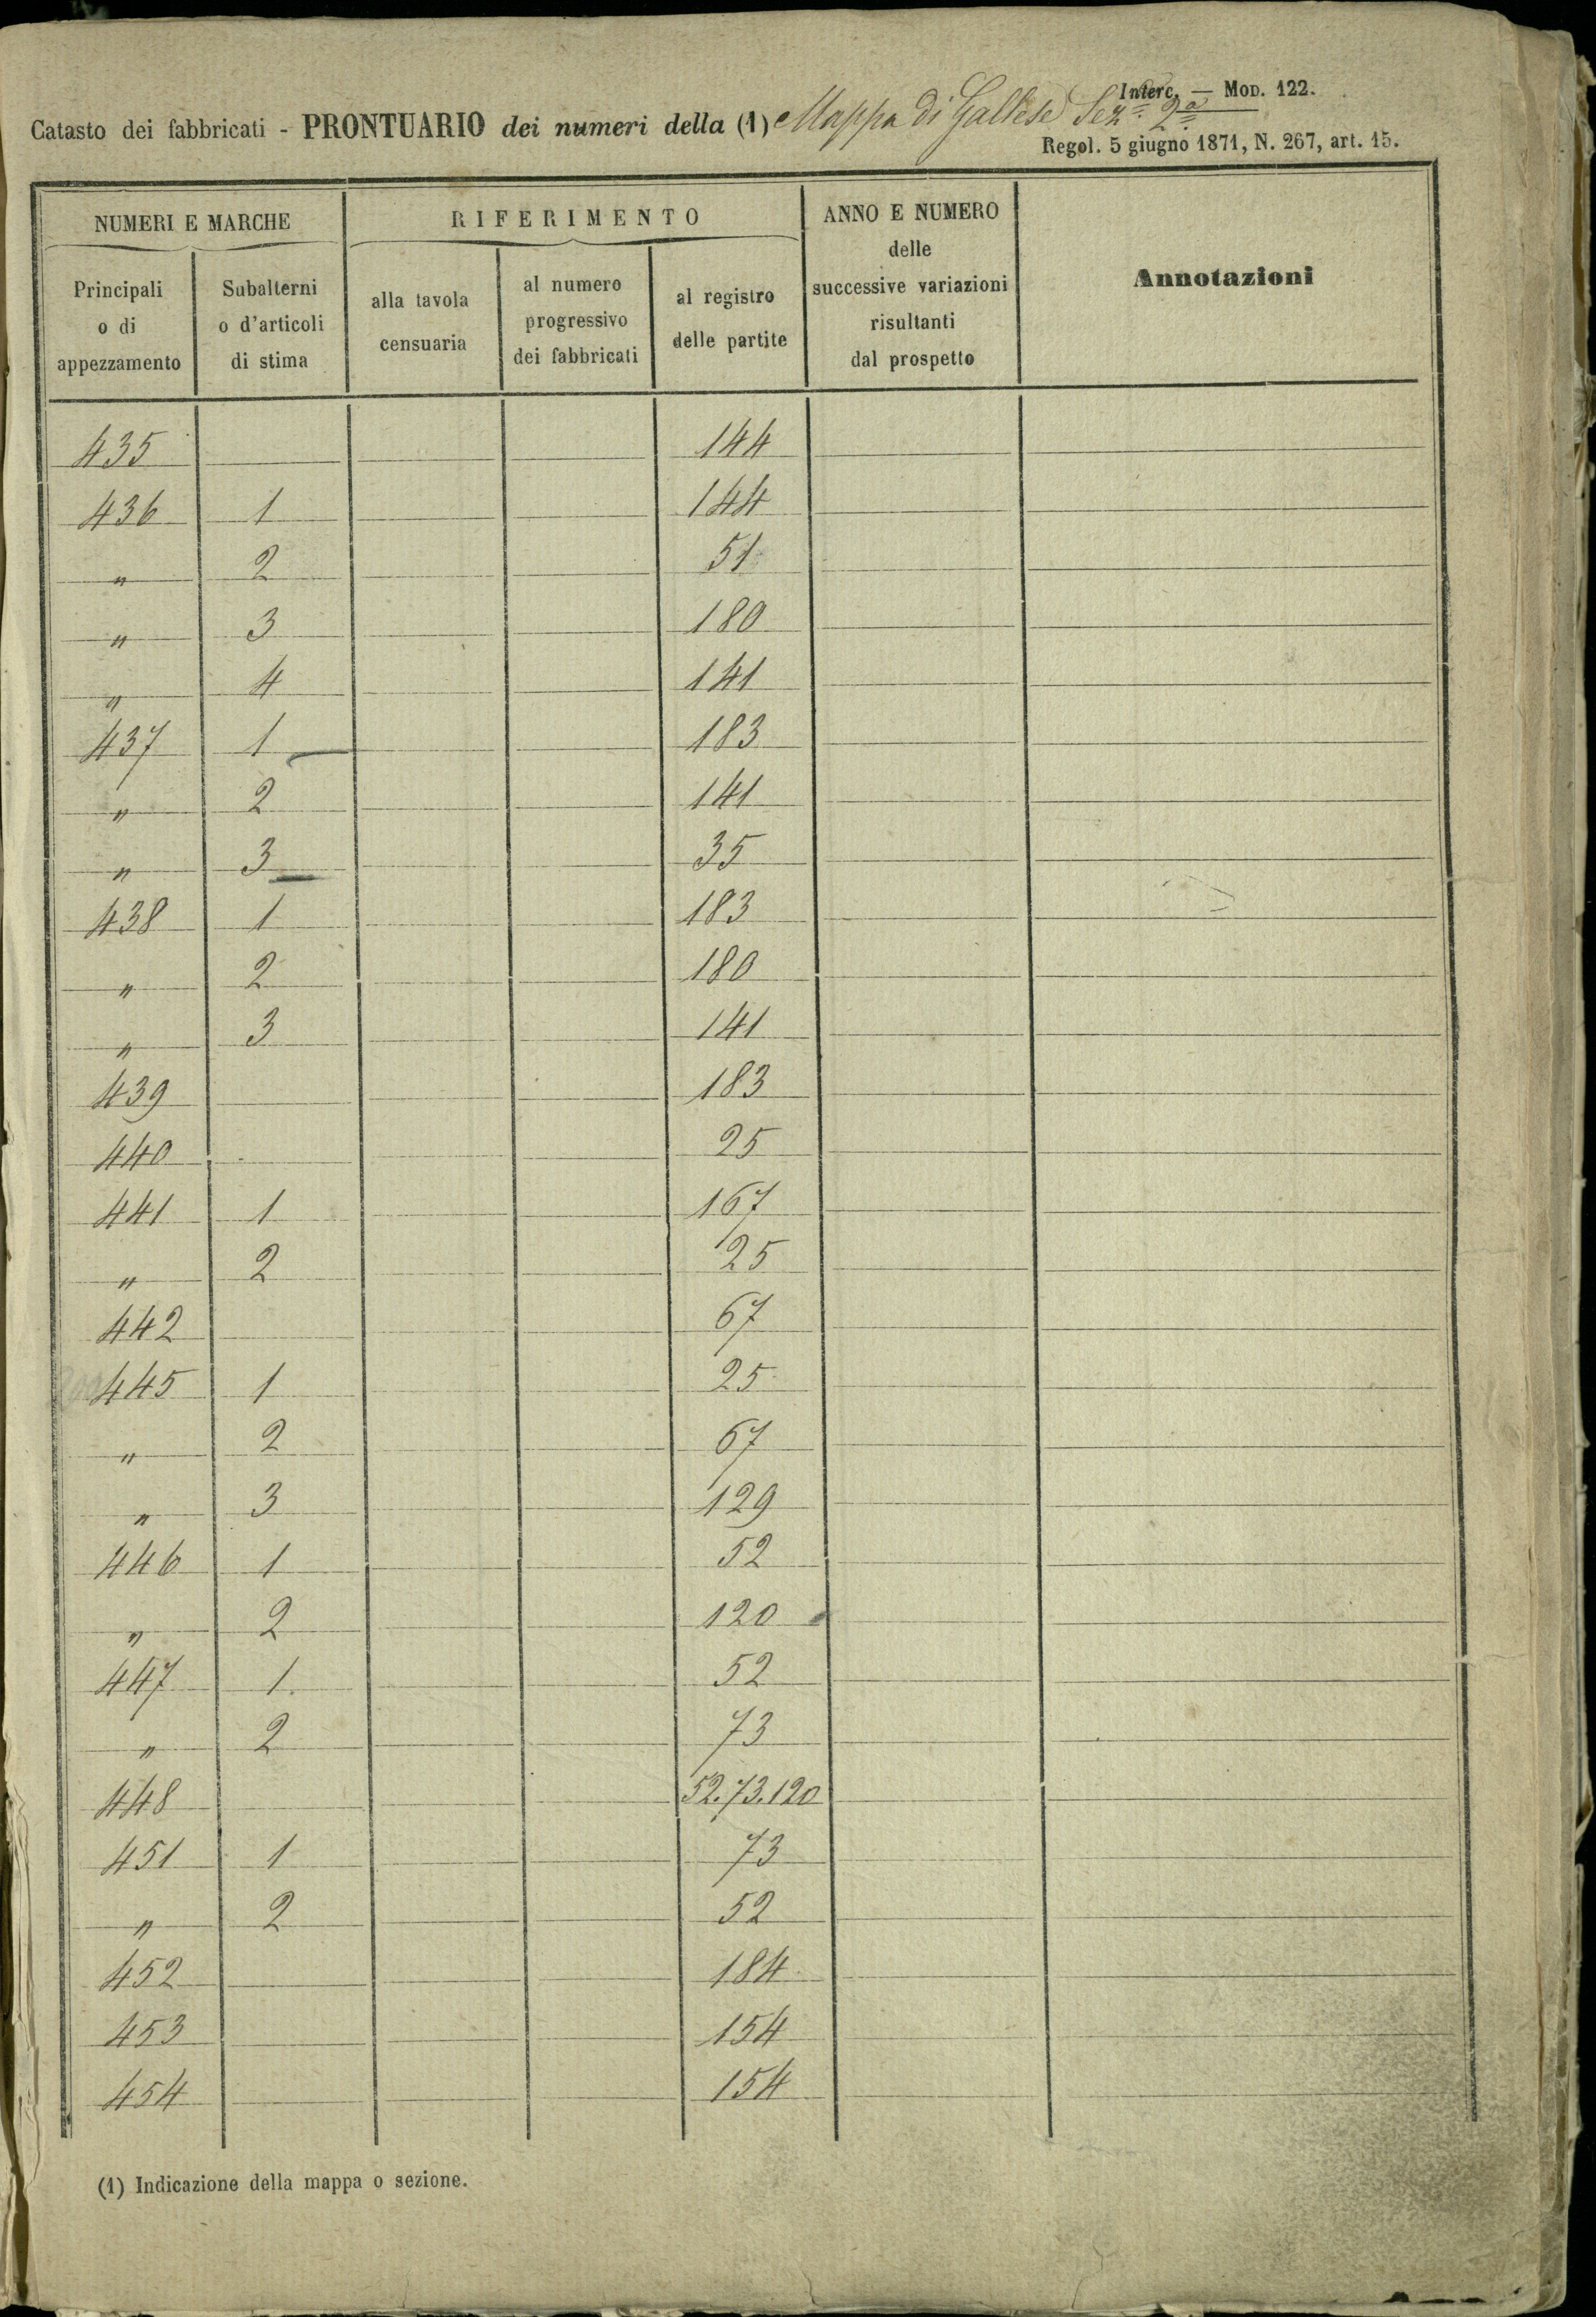 Interc. — Mod. 122.
Catasto dei fabbricati - PRONTUARIO dei numeri della (1) Mappa di Gallese Sez.e 2.a
Regol. 5 giugno 1871, N. 267, art. 15.
NUMERI E MARCHE
RIFERIMENTO
ANNO E NUMERO
delle
successive variazioni
risultanti
dal prospetto
Annotazioni
Principali
o di
appezzamento
Subalterni
o d'articoli
di stima
alla tavola
censuaria
al numero
progressivo
dei fabbricati
al registro
delle partite
435 144
436 1 144
" 2 51
" 3 180
" 4 141
437 1 183
" 2 141
" 3 35
438 1 183
" 2 180
" 3 141
439 183
440 25
441 1 167
" 2 25
442 67
445 1 25
" 2 67
" 3 129
446 1 52
" 2 120
447 1. 52
" 2 73
448 52.73.120
451 1 73
" 2 52
452 184
453 154
454 154
(1) Indicazione della mappa o sezione.